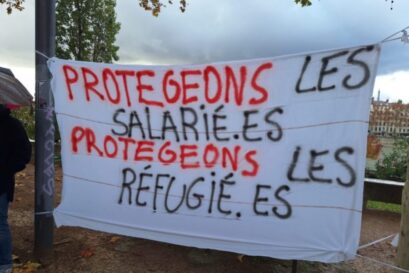 PROTEGEONS LES
SALARIÉ.ES
PROTEGEONS LES
RÉFUGIÉ.ES